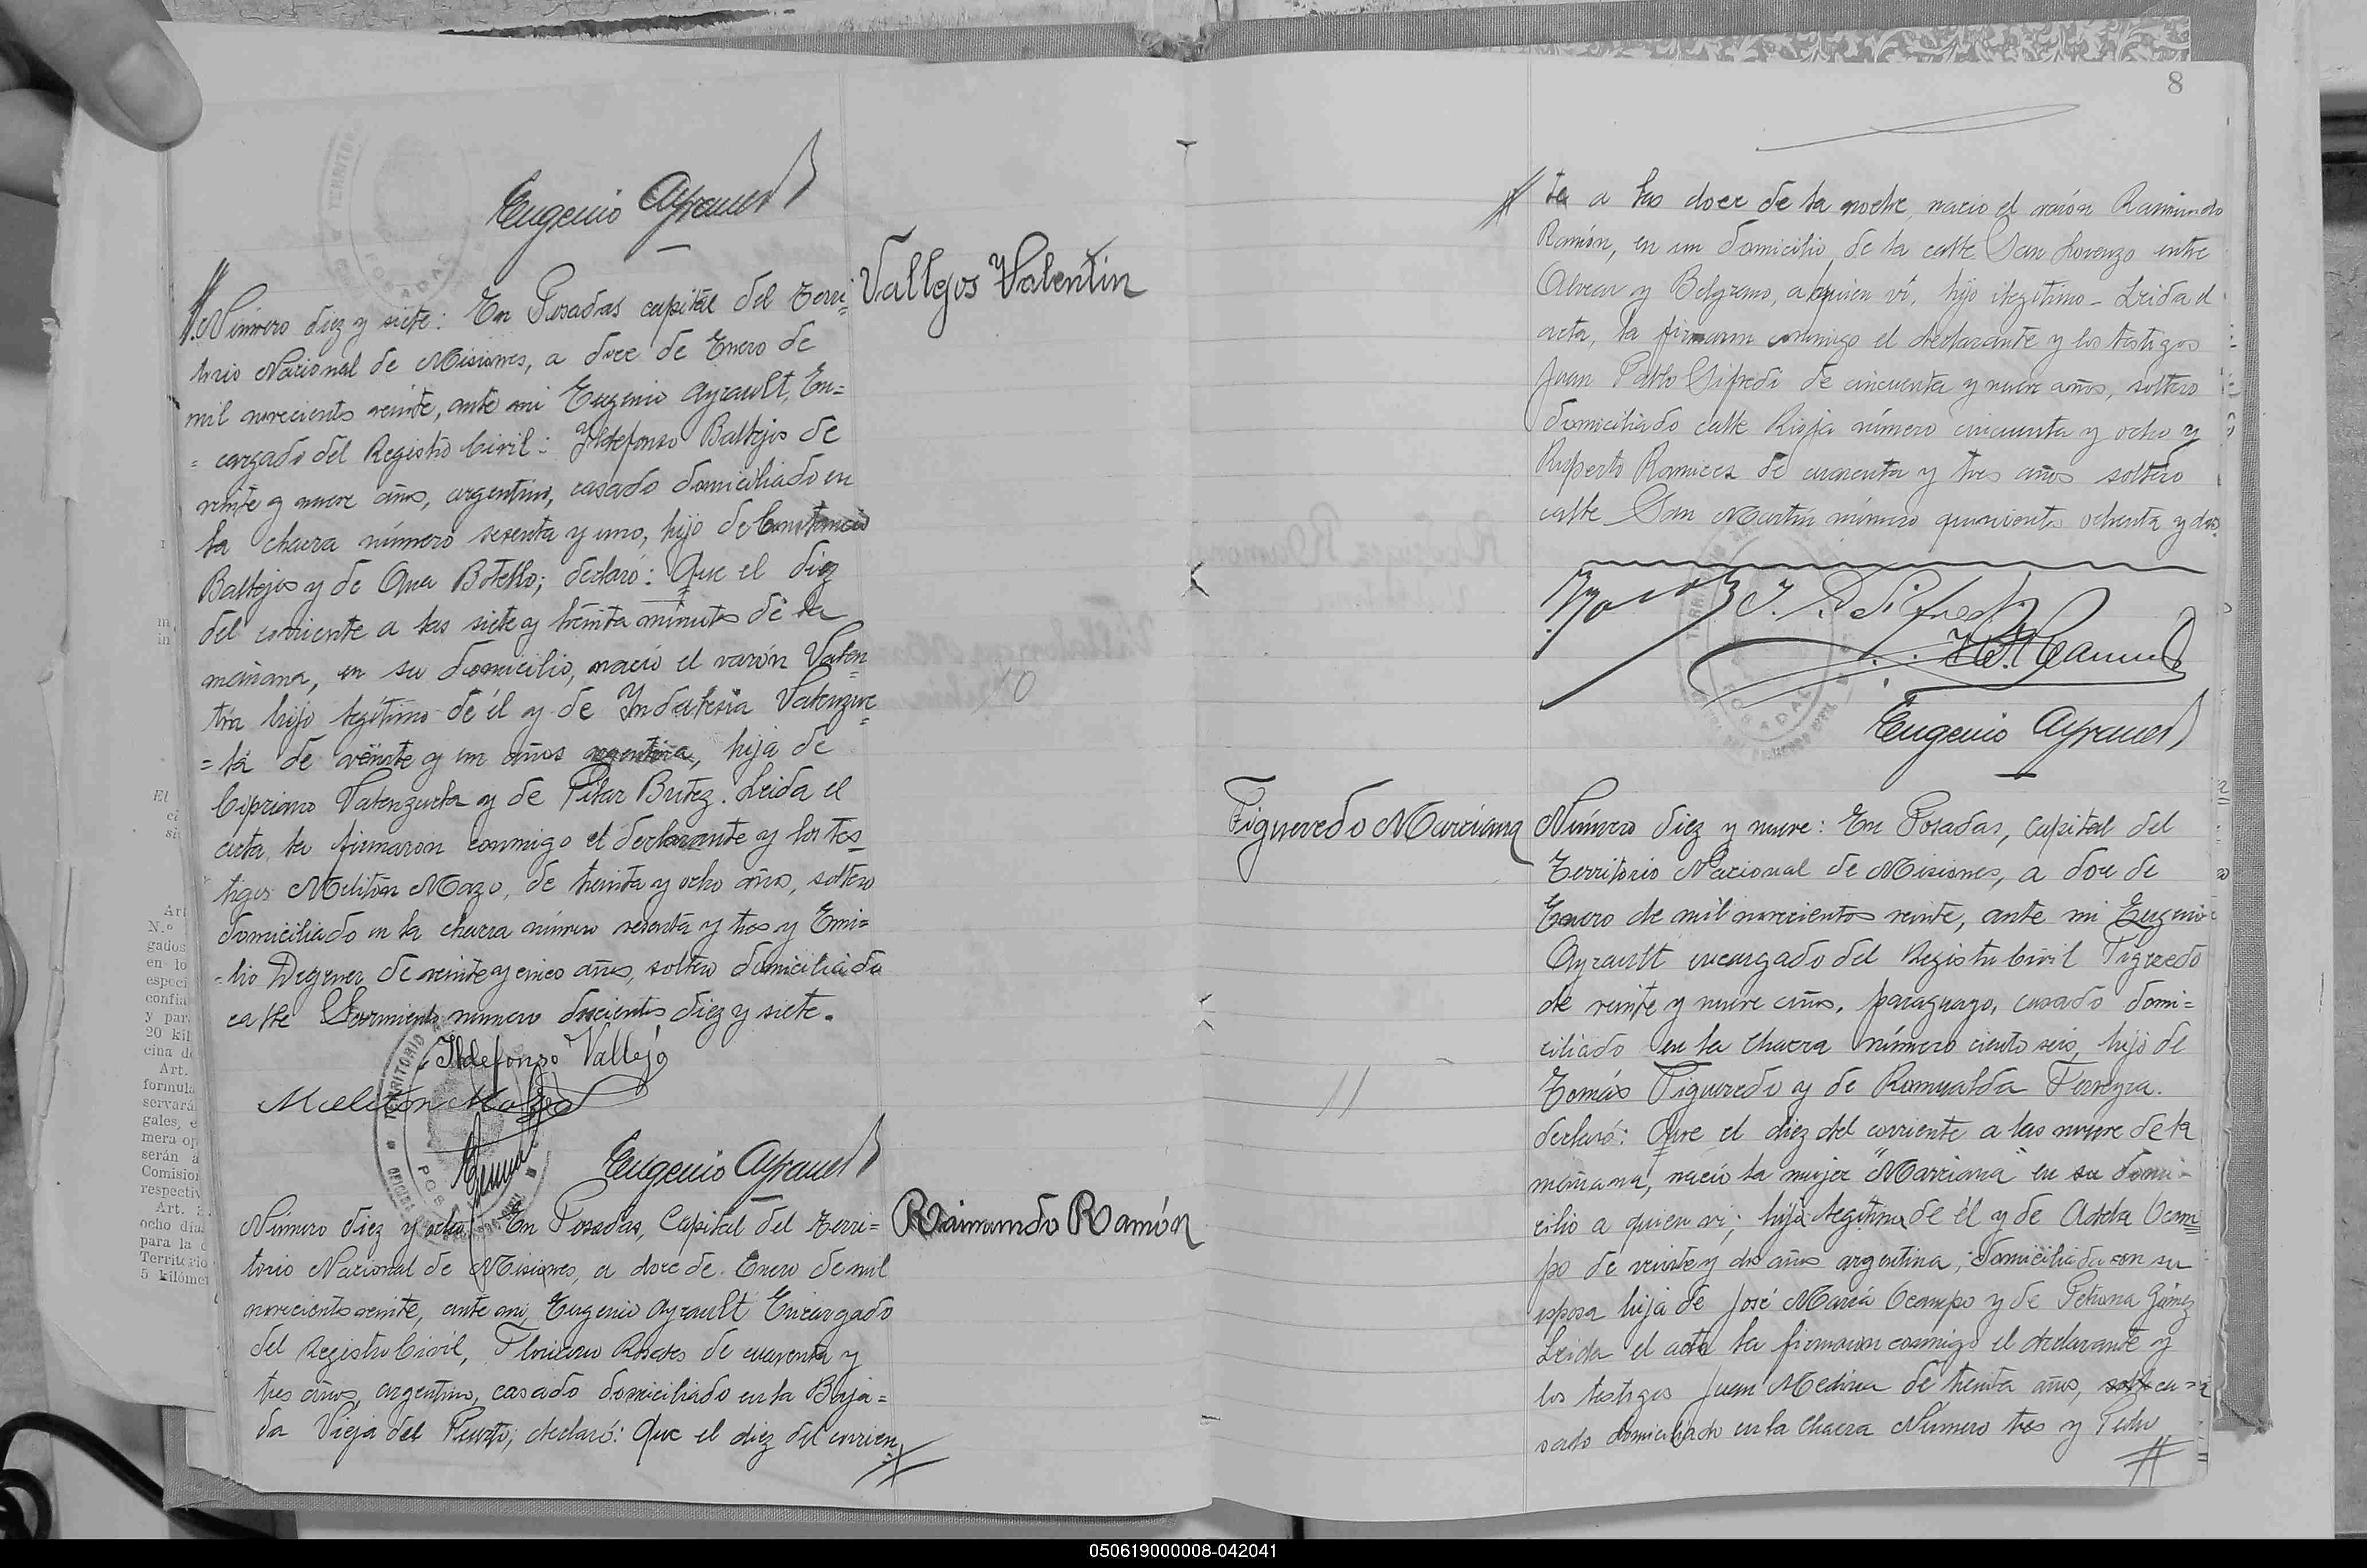 Eugenio Ayrault
Vallejos Valentin
Número diez y siete: En Posadas capital del Terri=
torio Nacional de Misiones, a doce de Enero de
mil novecientos veinte, ante mi Eugenio Ayrault, En=
=cargado del Registro Civil: Ildefonso Ballejos de
veinte y nueve años, argentino, casado domiciliado en
la chacra número sesenta y uno, hijo de Constancio
Ballejos y de Ana Botello; declaró: Que el diez
del corriente a las siete y treinta minutos de la
mañana, en su domicilio, nació el varón Valen=
tin hijo legítimo de él y de Indalesia Valenzue=
=la de veinte y un años argentina, hija de
Cipriano Valenzuela y de Pilar Britez. Leida el
acta, la firmaron conmigo el declarante y los tes=
tigos Melitón Mazo, de treinta y ocho años, soltero
domiciliado en la chacra número sesenta y tres y Emi=
=lio Wegener de veinte y cinco años, soltero domiciliado
calle Sarmiento número doscientos diez y siete.
10
Ildefonso Vallejo
Meliton Mazo
Eugenio Ayrault
Raimundo Ramón
Número diez y ocho En Posadas, Capital del Terri=
torio Nacional de Misiones, a doce de Enero de mil
novecientos veinte, ante mi, Eugenio Ayrault Encargado
del Registro Civil, de cuarenta y
tres años, argentino, casado domiciliado en la Baja=
da Vieja del Puerto; declaró: Que el diez del corrien
8
te a las doce de la noche, nació el varón Raimundo
Ramón, en un domicilio de la calle San Lorenzo entre
Alvear y Belgrano, a quien vi, hijo ilegítimo - Leida el
acta, la firmaron conmigo el declarante y los testigos
Juan Pablo Sifredi de cincuenta y nueve años, soltero
domiciliado calle Rioja número cincuenta y ocho y
Ruperto Ramirez de cuarenta y tres años soltero
calle San Martín número quinientos ochenta y dos.
J. P. Sifredi
Eugenio Ayrault
Figueredo Marciana
Número diez y nueve: En Posadas, Capital del
Territorio Nacional de Misiones, a doce de
Enero de mil novecientos veinte, ante mi Eugenio
Ayrault encargado del Registro Civil Figueredo
de veinte y nueve años, paraguayo, casado domi=
ciliado en la chacra número ciento seis, hijo de
Tomás Figueredo y de Romualda Ferreyra.
declaró: Que el diez del corriente a las nueve de la
mañana, nació la mujer "Marciana" en su domi=
cilio a quien vi; hija legítima de él y de Adela Ocam=
po de veinte y dos años argentina, domiciliada con su
esposo hija de José María Ocampo y de Petrona Gómez
Leida el acta la firmaron conmigo el declarante y
los testigos Juan Medina de treinta años, solt ca=
sado domiciliado en la chacra Número tres y Pedro
11
TERRITORIO
POSADAS
050619000008-042041